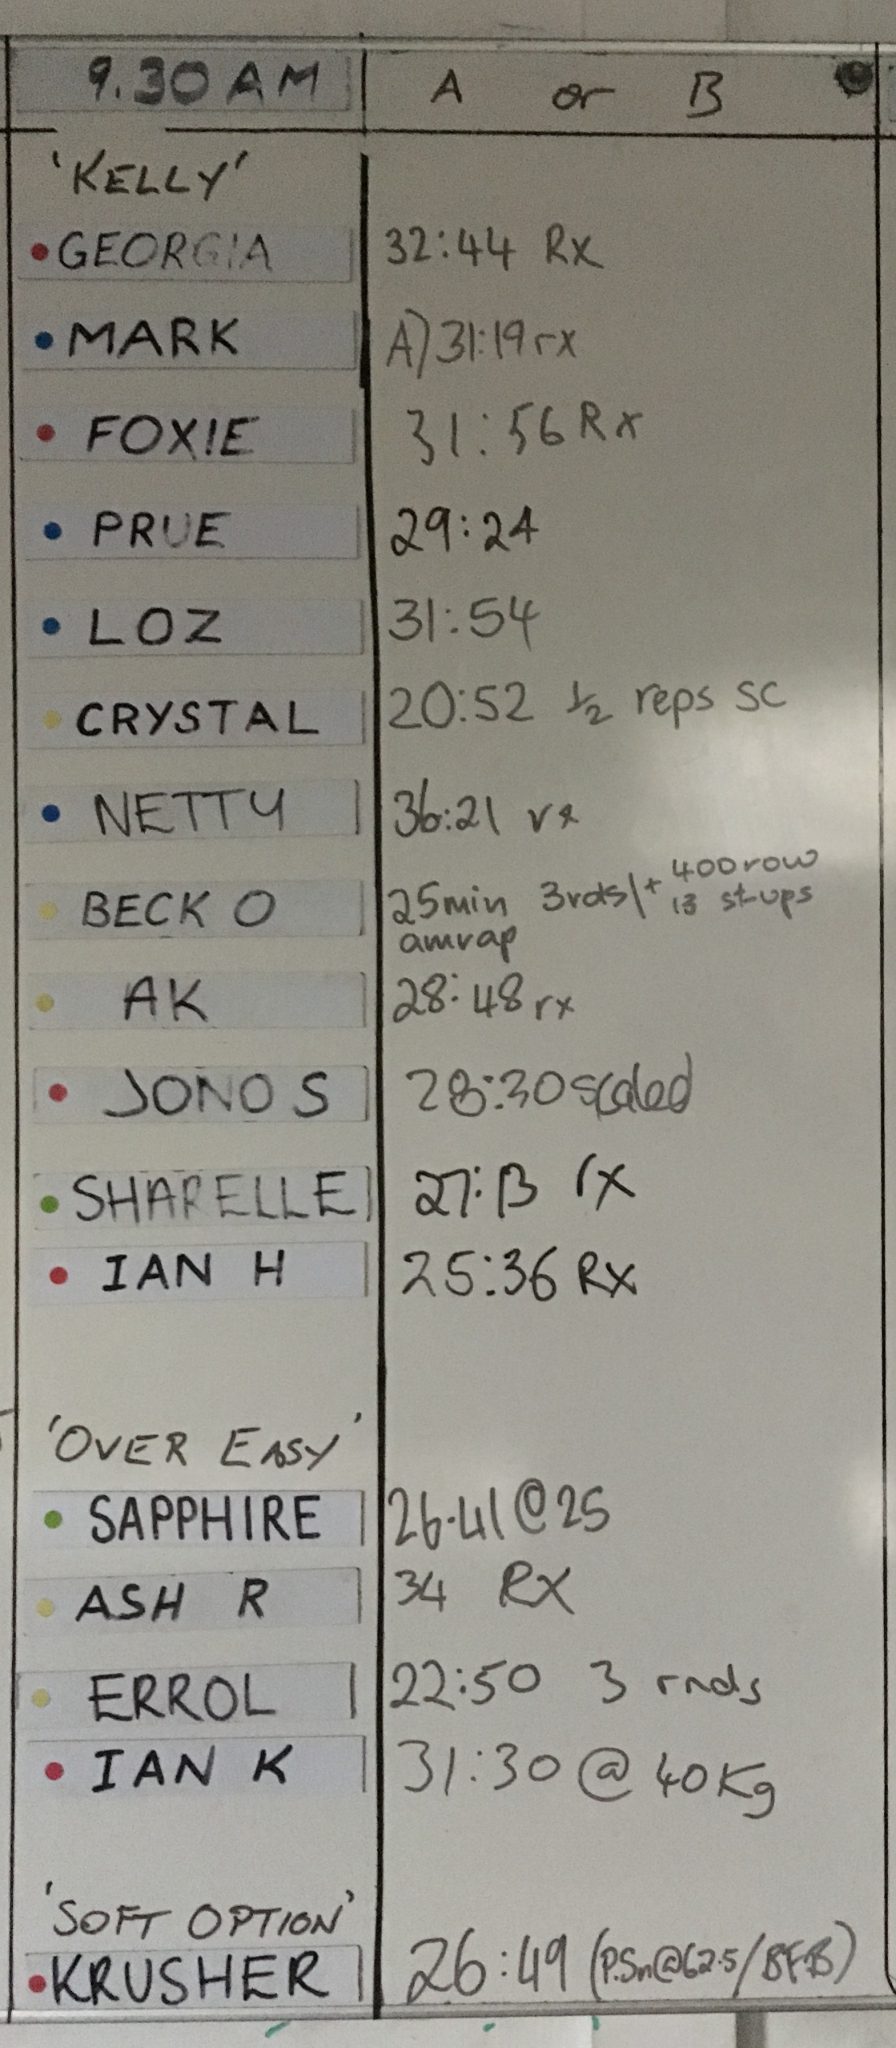 9.30 AM A or B
'KELLY'
GEORGIA 32:44 Rx
MARK A) 31:19 rx
FOXIE 31:56 Rx
PRUE 29:24
LOZ 31:54
CRYSTAL 20:52 ½ reps sc
NETTY 36:21 rx
BECK O 25min 3rds + 400 row
amrap 13 st-ups
AK 28:48 rx
JONO S 28:30 scaled
SHARELLE 27:13 rx
IAN H 25:36 Rx
'OVER EASY'
SAPPHIRE 26.41 @ 25
ASH R 34 RX
ERROL 22:50 3 rnds
IAN K 31:30 @ 40Kg
'SOFT OPTION'
KRUSHER 26:49 (P.Sn@62.5/BFB)